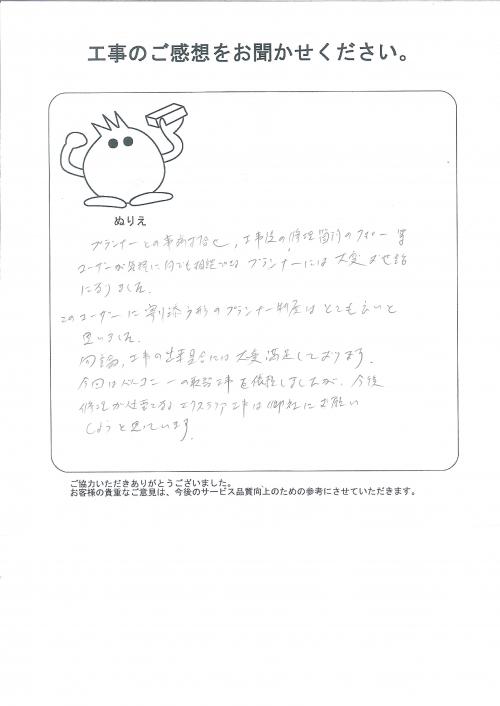 工事のご感想をお聞かせください。
ぬりえ
プランナーとの事前打合せ、工事後の修理箇所のフォロー等
ユーザーが気軽に何でも相談できるプランナーには大変お世話
になりました。
このユーザーに寄り添う形のプランナー制度はとても良いと
思いました。
勿論、工事の出来具合には大変満足しております。
今回はバルコニーの取替工事を依頼しましたが、今後
修理が必要なエクステリア工事は御社にお願い
しようと思っています。
ご協力いただきありがとうございました。
お客様の貴重なご意見は、今後のサービス品質向上のための参考にさせていただきます。